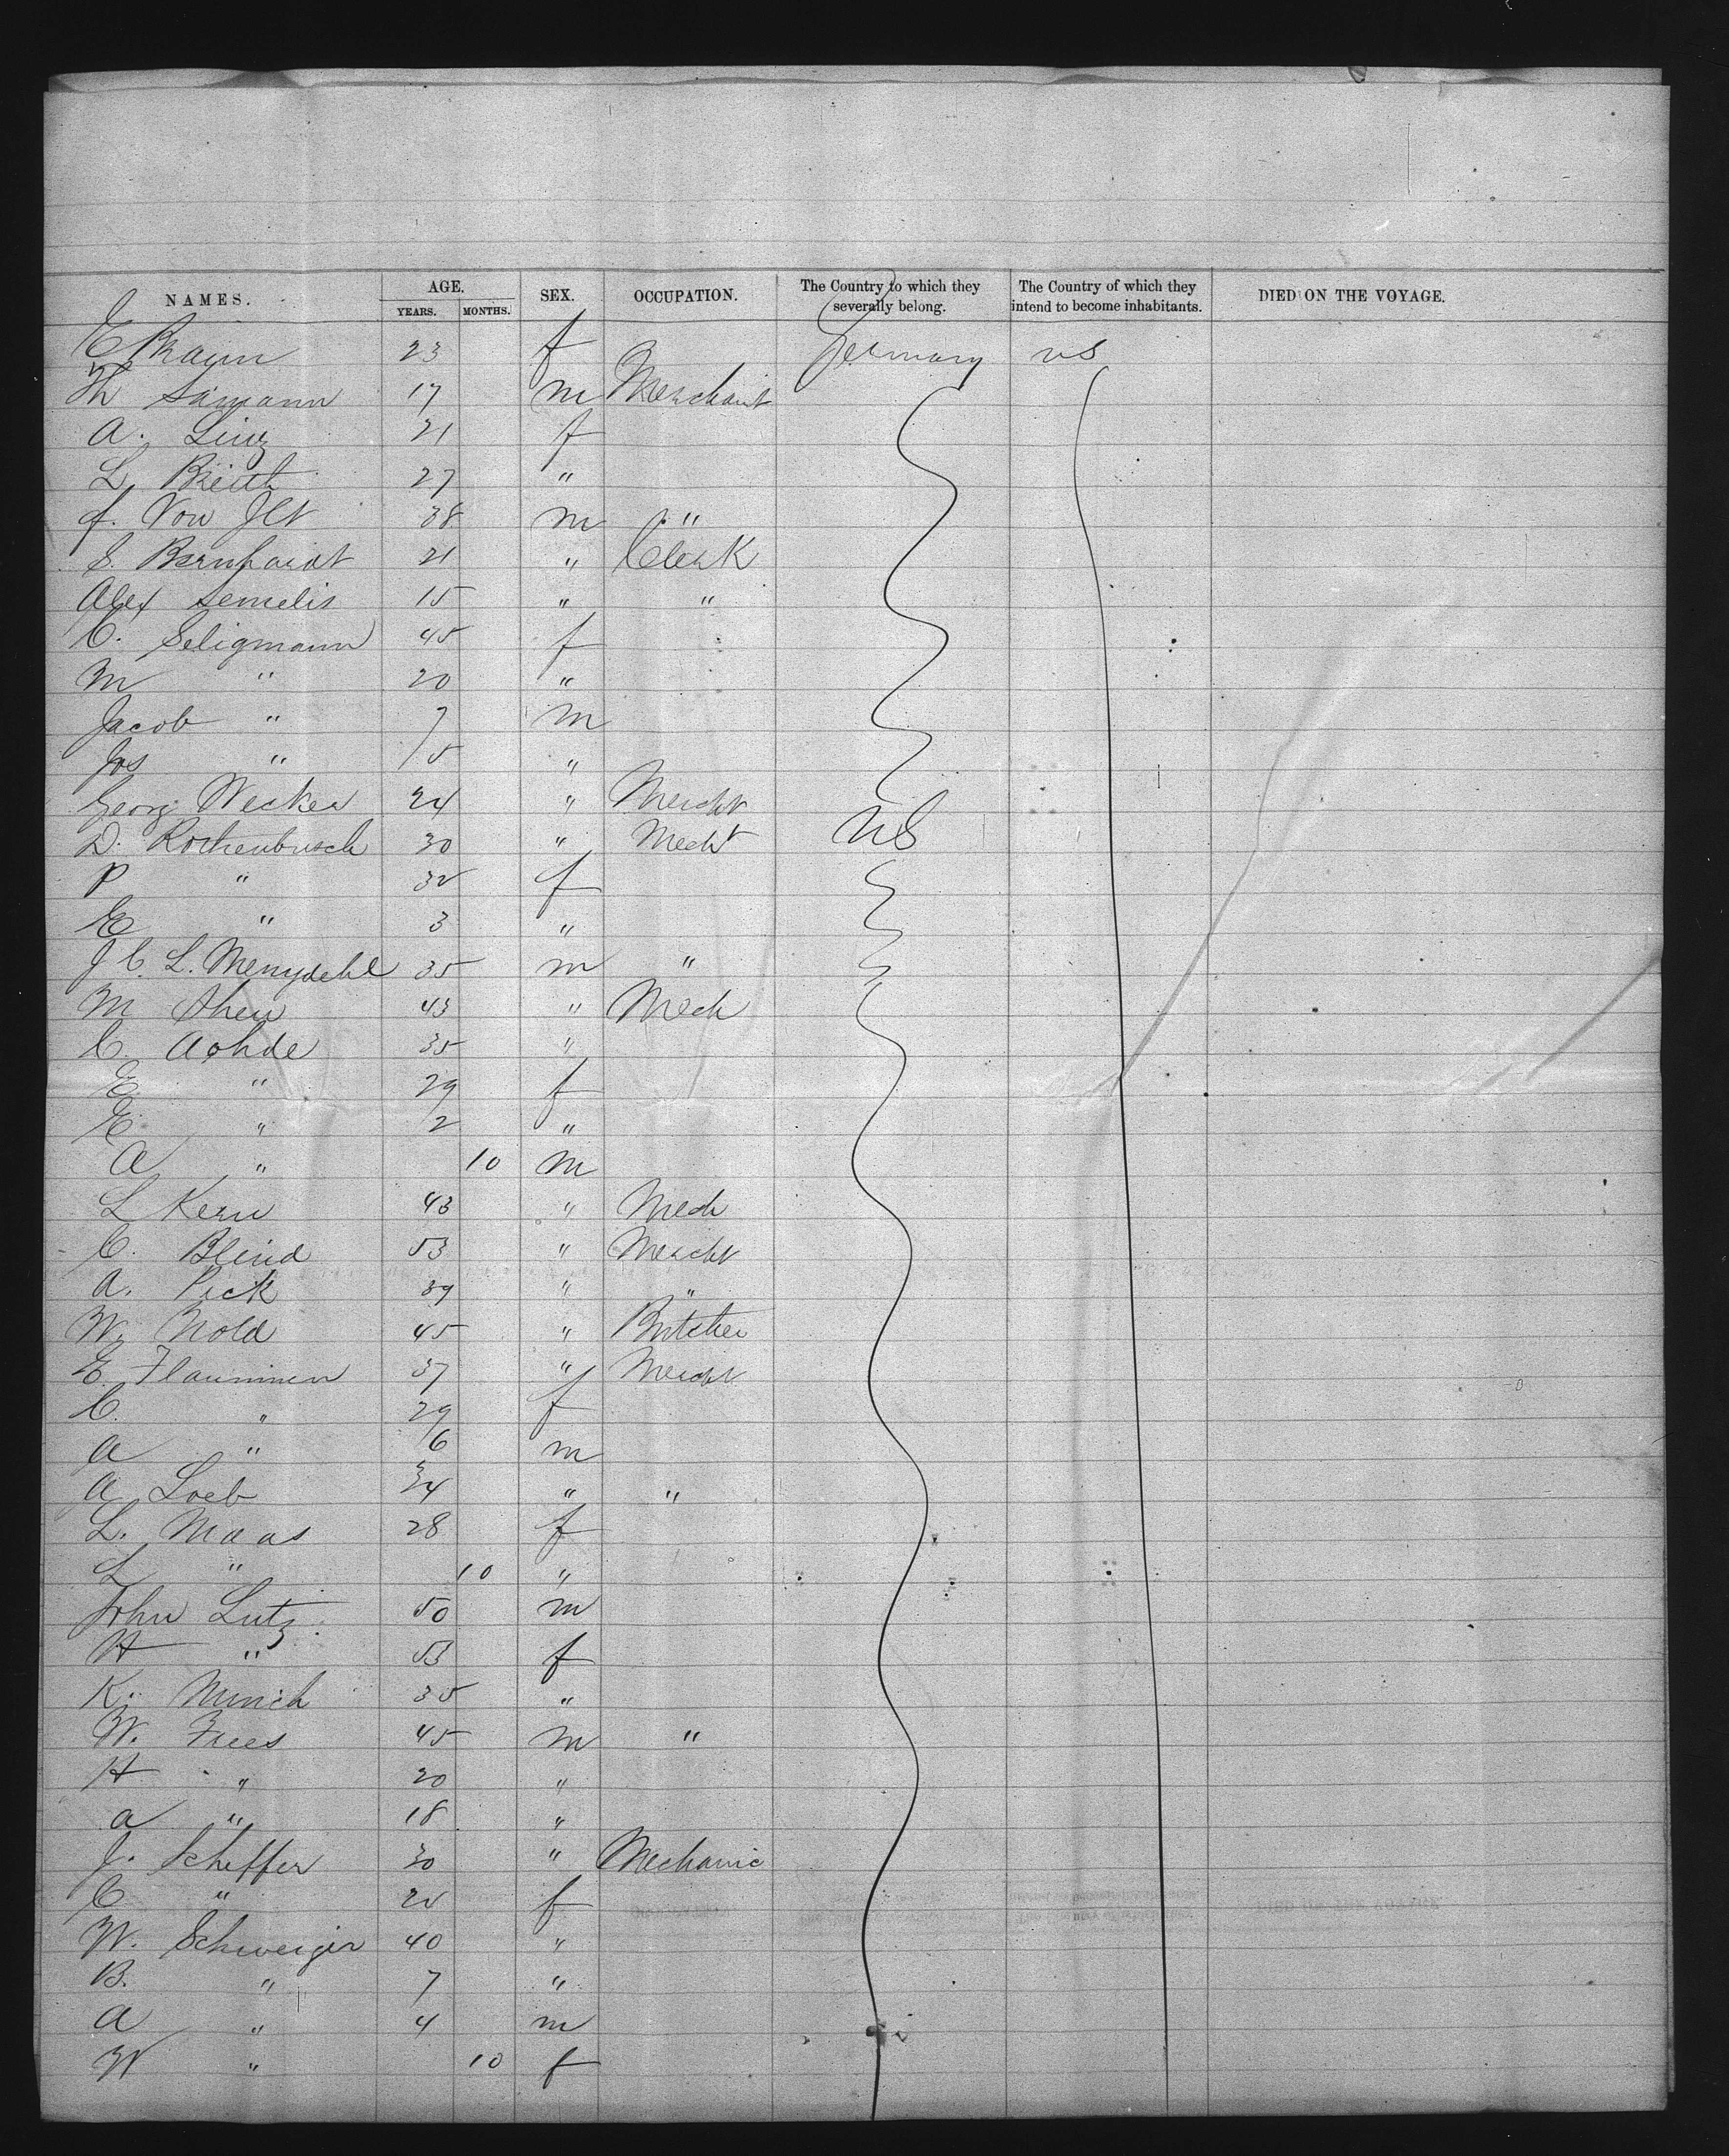 NAMES. AGE. YEARS. MONTHS. SEX. OCCUPATION. The Country to which they severally belong. The Country of which they intend to become inhabitants. DIED ON THE VOYAGE.
E 23 f Germany US
Th Samann 17 m Merchant
A. Linz 21 f
L. 27 "
f. Von 38 m "
S. Bernhardt 21 " Clerk
Alex 15 " "
C. Seligmann 45 f
M " 20 "
Jacob " 7 m
Jos " 5 "
Georg Wecker 24 " Mercht
D. Rothenbusch 30 " Mecht US
P " 32 f
E " 3 "
J C. L. 35 m "
M 43 " Mech
C. 35 "
E " 29 f
E. " 2 "
A " 10 m
L Kern 43 " Mech
C. Blind 53 " Mercht
A. Pick 39 " "
W. Nold 45 " Butcher
E. 37 " Mercht
C. " 29 f
A " 6 m
A Loeb 34 " "
L. Maas 28 f
L " 10 "
John Lutz 50 m
H " 53 f
K. Munich 35 "
W. Frees 45 m "
H " 20 "
a " 18 "
J. Scheffer 30 " Mechanic
C " f
W. Schweiger 40 "
B. " 7 "
A " 4 m
W " 10 f